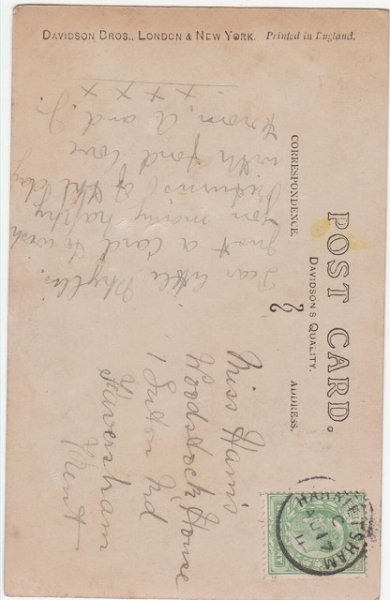 DAVIDSON BROS., LONDON & NEW YORK. Printed in England.
POST CARD.
DAVIDSON'S QUALITY.
CORRESPONDENCE.
ADDRESS.
Dear little Phyllis.
Just a card to wish
you many happy
Returns of the day
with fond love
from, A and J.
x x x x
Miss Harris
Woodstock House
1 Rd
Faversham
Kent
HARRIETSHAM
AU 17
11